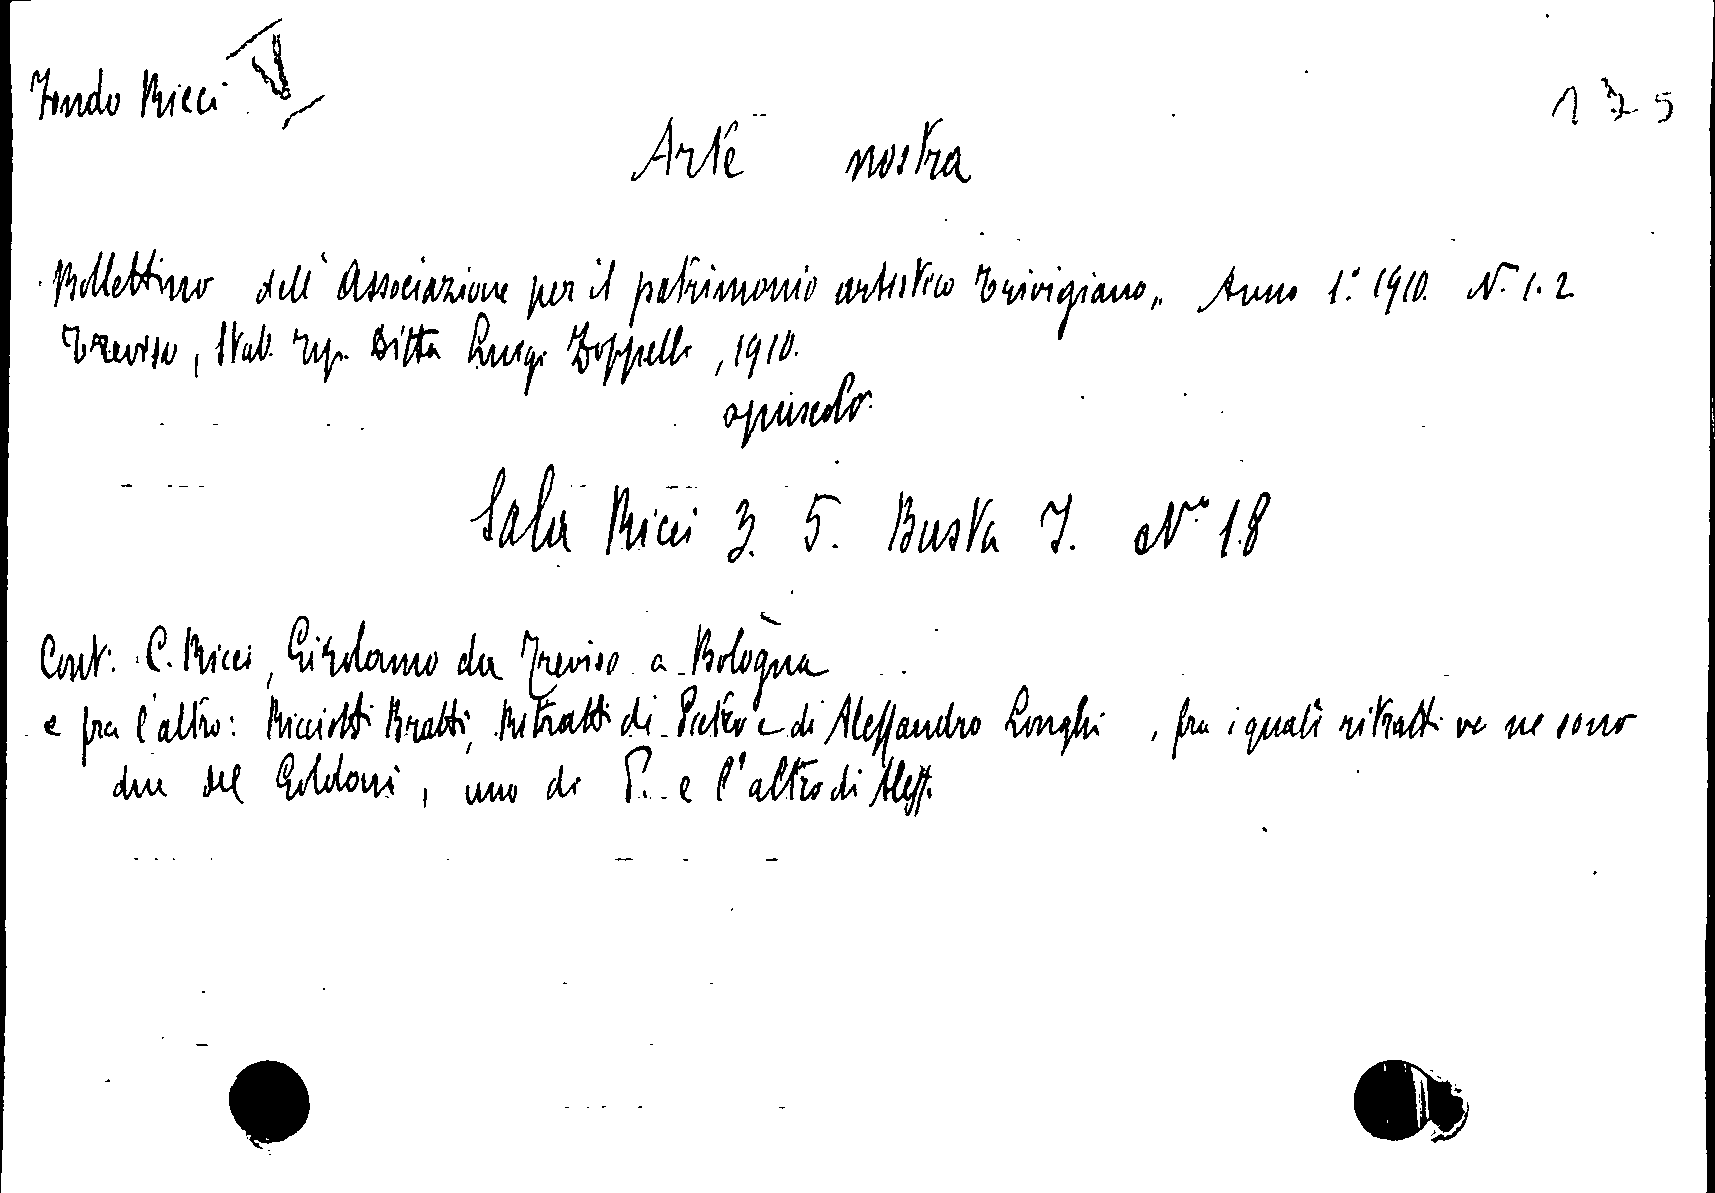 Fondo Ricci V
175
Arte nostra
Bollettino dell'Associazione per il patrimonio artistico Trivigiano„ Anno 1.° 1910. N. 1.2
Treviso, Stab. Tip. Ditta Luigi Zoppelli, 1910.
opuscolo.
Sala Ricci 3. 5. Busta I. N° 18
Cont: C. Ricci, Girolamo da Treviso a Bologna
e fra l'altro: Ricciotti Bratti, Ritratti di Pietro e di Alessandro Longhi, fra i quali ritratti ve ne sono
due del Goldoni, uno di P. e l'altro di Aless.